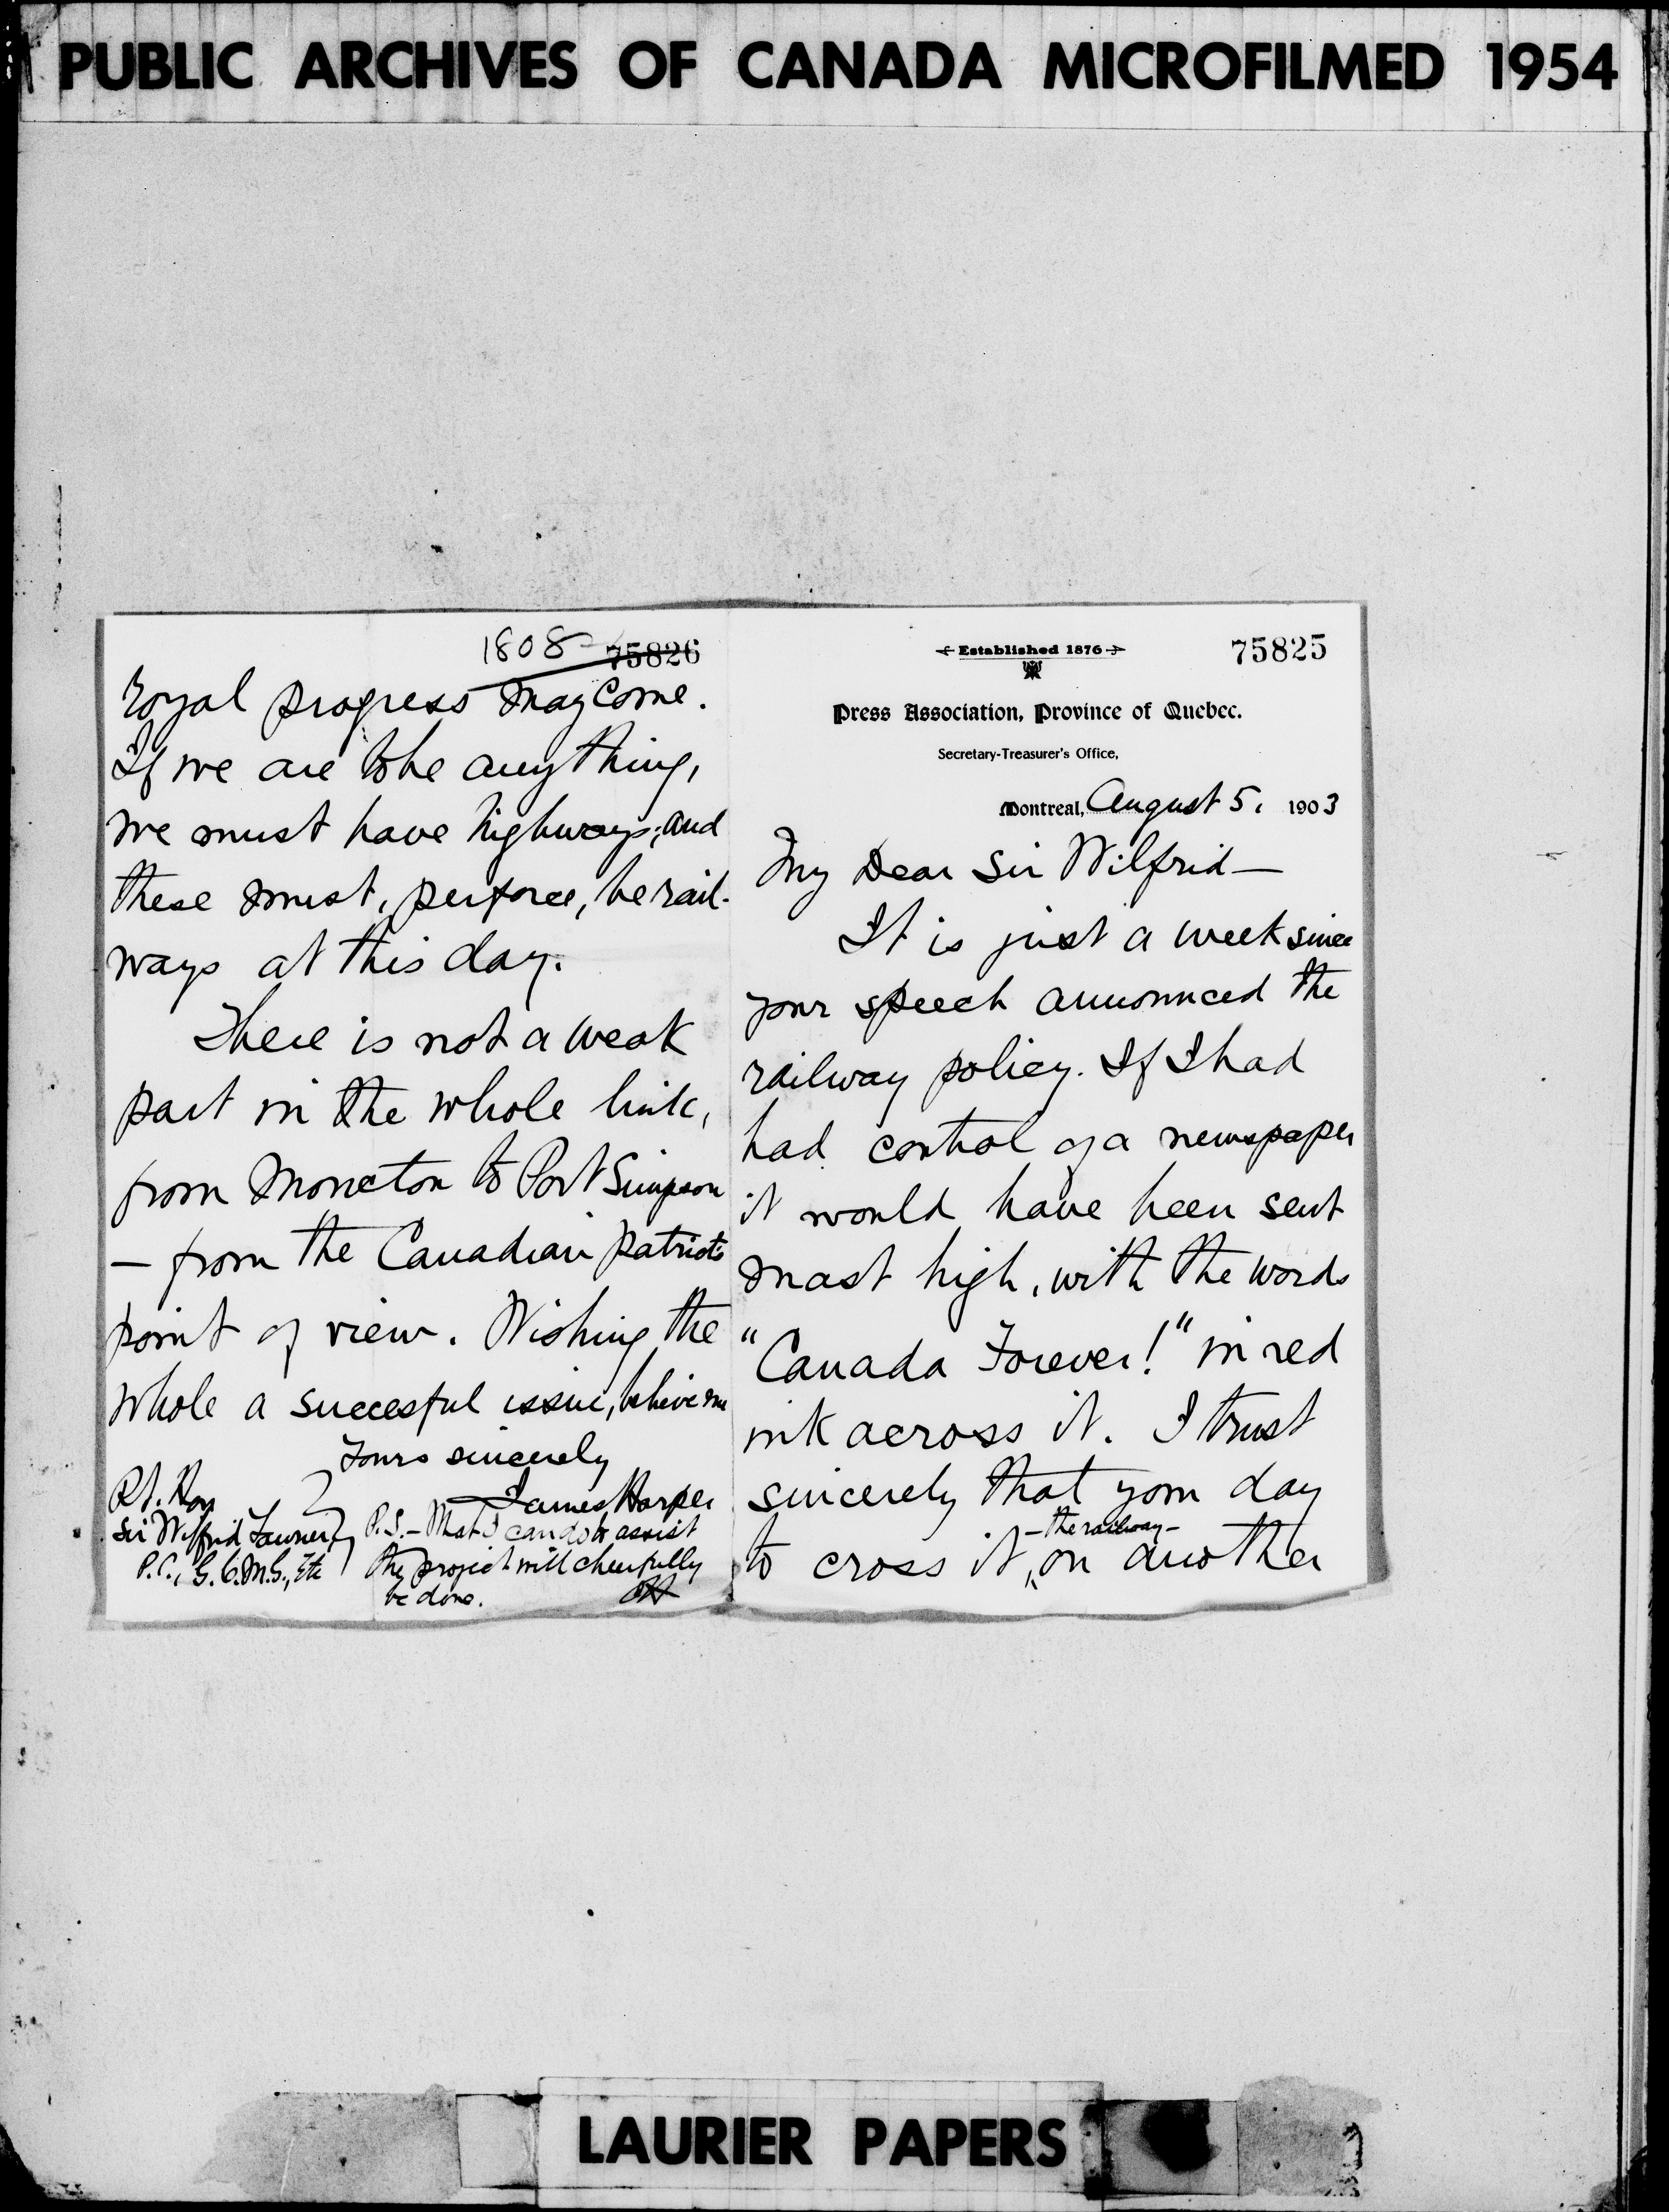 PUBLIC ARCHIVES OF CANADA MICROFILMED 1954
Established 1876
75825
Press Association, Province of Quebec.
Secretary-Treasurer's Office,
Montreal, August 5, 1903
My Dear Sir Wilfrid—
It is just a week since
your speech announced the
railway policy. If I had
had control of a newspaper
it would have been sent
mast high, with the words
"Canada Forever!" in red
ink across it. I trust
sincerely that your day
—the railway—
to cross it, on another
1808
75826
royal progress may come.
If we are to be anything,
we must have highways; and
these must, perforce, be rail-
ways at this day.
There is not a weak
part in the whole link,
from Moncton to Port Simpson
— from the Canadian patriots
point of view. Wishing the
whole a succesful issue, believe me
Yours sincerely
James Harper
Rt. Hon
Sir Wilfrid Laurier,
P.C., G.C.M.G., Etc
P.S.— What I can do to assist
the project will cheerfully
be done.
JH
LAURIER PAPERS